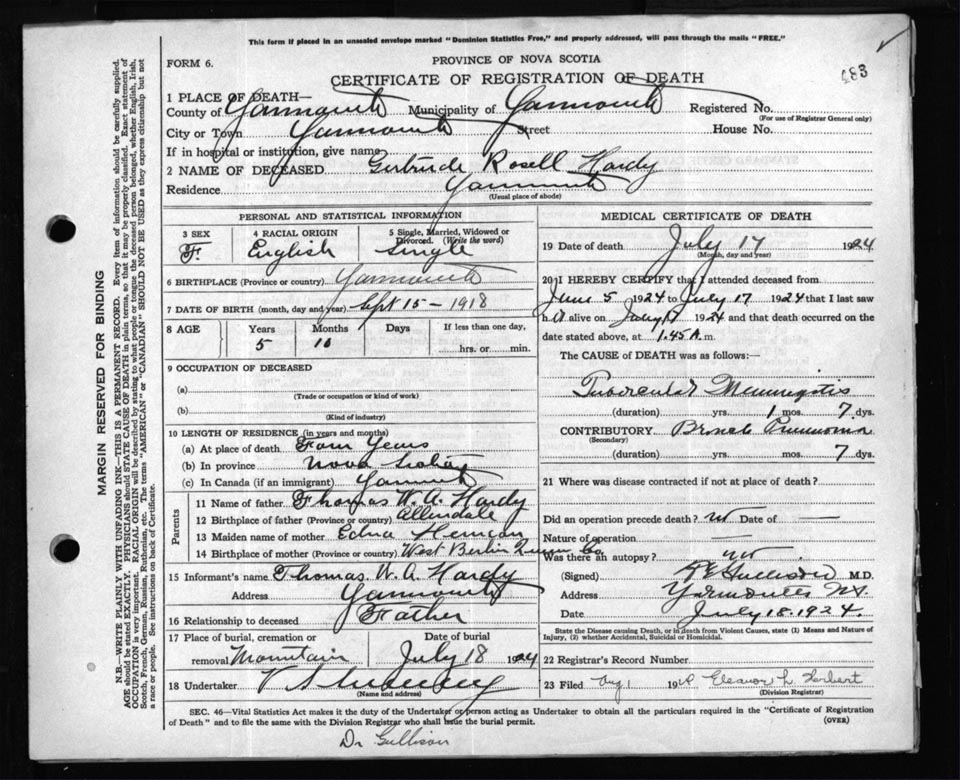 This form if placed in an unsealed envelope marked "Dominion Statistics Free," and properly addressed, will pass through the mails "FREE."
FORM 6.
PROVINCE OF NOVA SCOTIA
CERTIFICATE OF REGISTRATION OF DEATH
1 PLACE OF DEATH—
County of Yarmouth Municipality of Yarmouth Registered No.
(For use of Registrar General only)
City or Town Yarmouth Street House No.
If in hospital or institution, give name
2 NAME OF DECEASED Gertrude Rosell Hardy
Residence Yarmouth
(Usual place of abode)
PERSONAL AND STATISTICAL INFORMATION
3 SEX
F.
4 RACIAL ORIGIN
English
5 Single, Married, Widowed or Divorced. (Write the word)
Single
6 BIRTHPLACE (Province or country) Yarmouth
7 DATE OF BIRTH (month, day and year) Sept 15 - 1918
8 AGE Years Months Days If less than one day,
5 10 hrs. or min.
9 OCCUPATION OF DECEASED
(a)
(Trade or occupation or kind of work)
(b)
(Kind of industry)
10 LENGTH OF RESIDENCE (in years and months)
(a) At place of death Four Years
(b) In province Nova Scotia
(c) In Canada (if an immigrant) Yarmouth
Parents
11 Name of father Thomas W. A. Hardy
12 Birthplace of father (Province or country) Allendale
13 Maiden name of mother Edna
14 Birthplace of mother (Province or country) West Berlin Co
15 Informant's name Thomas W. A. Hardy
Address Yarmouth
16 Relationship to deceased Father
17 Place of burial, cremation or removal Mountain
Date of burial July 18 1924
18 Undertaker
(Name and address)
MEDICAL CERTIFICATE OF DEATH
19 Date of death July 17 1924
(Month, day and year)
20 I HEREBY CERTIFY that I attended deceased from
June 5 1924 to July 17 1924 that I last saw
h alive on July 17 1924 and that death occurred on
date stated above, at 1.45 A. m.
The CAUSE of DEATH was as follows:—
Tubercular Meningitis
(duration) yrs. 1 mos. 7 dys.
CONTRIBUTORY Pneumonia
(Secondary)
(duration) yrs. mos. 7 dys.
21 Where was disease contracted if not at place of death?
Did an operation precede death? Date of —
Nature of operation —
Was there an autopsy?
(Signed) Gullison M.D.
Address Yarmouth N.S.
Date July 18. 1924.
State the Disease causing Death, or in death from Violent Causes, state (1) Means and Nature of Injury, (2) whether Accidental, Suicidal or Homicidal.
22 Registrar's Record Number
23 Filed Aug 1 19 Eleanor L. Herbert
(Division Registrar)
SEC. 46—Vital Statistics Act makes it the duty of the Undertaker or person acting as Undertaker to obtain all the particulars required in the "Certificate of Registration
of Death" and to file the same with the Division Registrar who shall issue the burial permit. (OVER)
Dr Gullison
MARGIN RESERVED FOR BINDING
N.B.—WRITE PLAINLY WITH UNFADING INK—THIS IS A PERMANENT RECORD. Every item of information should be carefully supplied.
AGE should be stated EXACTLY. PHYSICIANS should STATE CAUSE OF DEATH in plain terms, so that it may be properly classified. Exact statement of
OCCUPATION is very important. RACIAL ORIGIN will be described by stating to what people or tongue the deceased person belonged, whether English, Irish,
Scotch, French, German, Russian, Ruthenian, etc. The terms "AMERICAN" or "CANADIAN" SHOULD NOT BE USED as they express citizenship but not
a race or people. See instructions on back of Certificate.